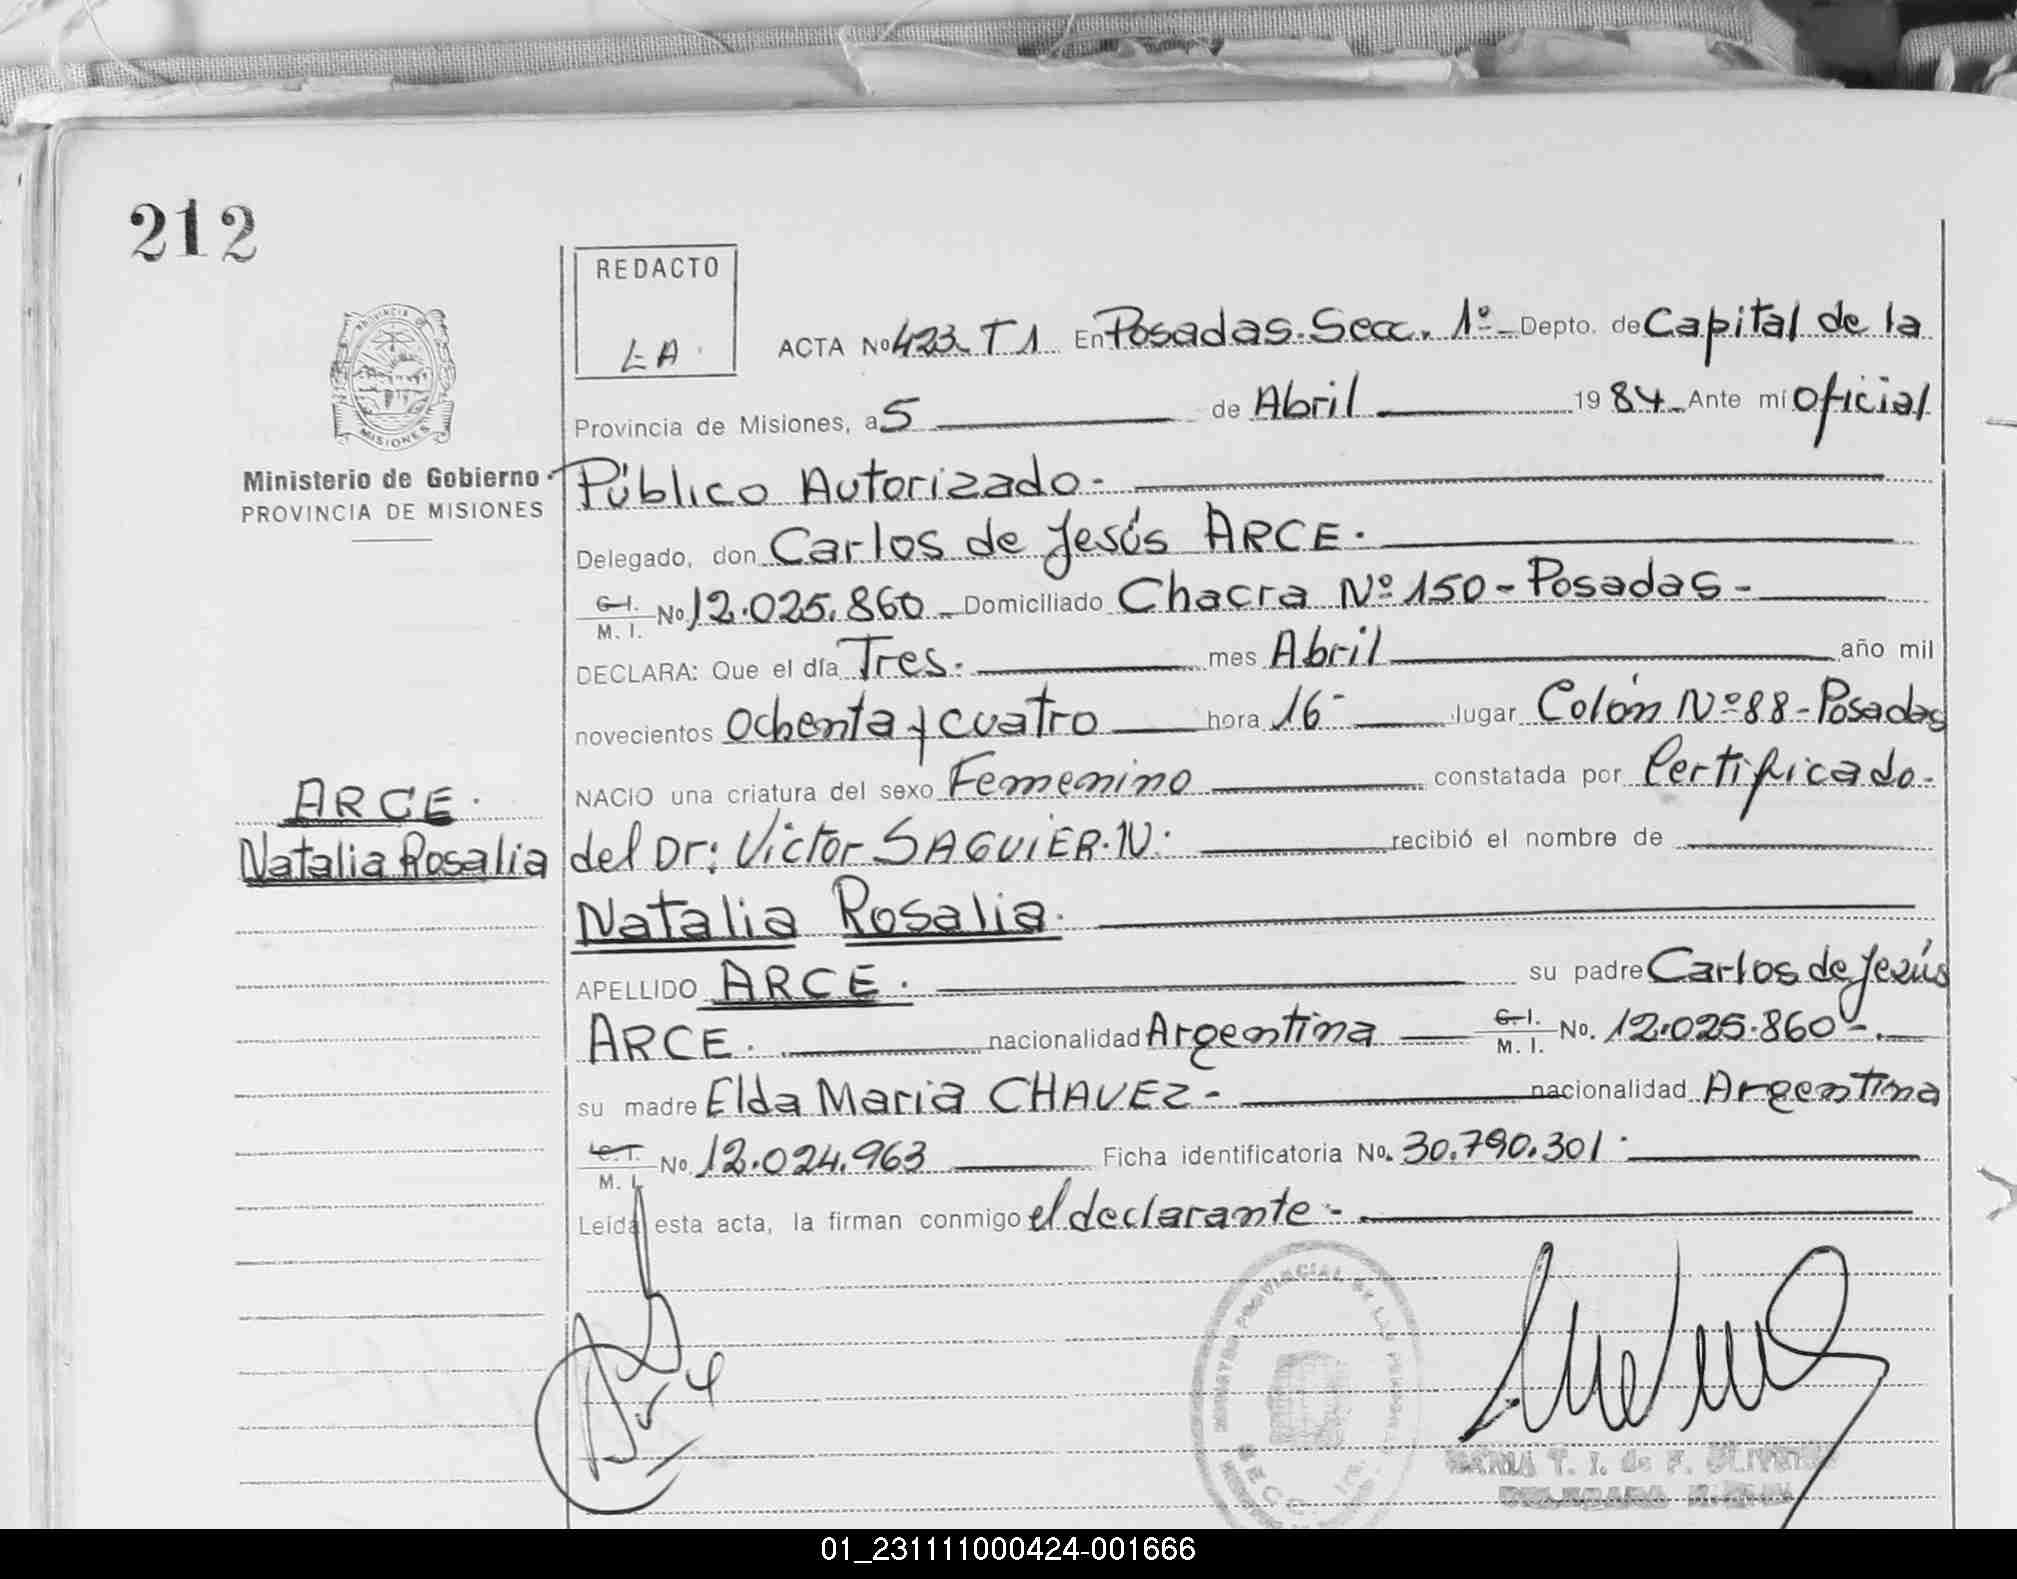 212
REDACTO
LA.
PROVINCIA DE
MISIONES
Ministerio de Gobierno
PROVINCIA DE MISIONES
ACTA No 423. T1 En Posadas. Secc. 1º- Depto. de Capital de la
Provincia de Misiones, a 5 de Abril 1984 Ante mí Oficial
Público Autorizado -
Delegado, don Carlos de Jesús ARCE.
C. I.
M. I. No 12.025.860 Domiciliado Chacra Nº 150 - Posadas -
DECLARA: Que el día Tres. mes Abril año mil
novecientos Ochenta y cuatro hora 16- lugar Colón Nº 88 - Posadas
NACIO una criatura del sexo Femenino constatada por Certificado
ARCE.
Natalia Rosalia
del Dr: Victor SAGUIER. N. recibió el nombre de
Natalia Rosalia.
APELLIDO ARCE. su padre Carlos de Jesús
ARCE. nacionalidad Argentina C. I.
M. I. No. 12.025.860 -.
su madre Elda Maria CHAVEZ - nacionalidad Argentina
C. I.
M. I. No. 12.024.963 Ficha identificatoria No. 30.790.301.
Leída esta acta, la firman conmigo el declarante -
REGISTRO PROVINCIAL DE LAS PERSONAS
SECC. 1ra.
MARIA T. I. de F.
01_231111000424-001666